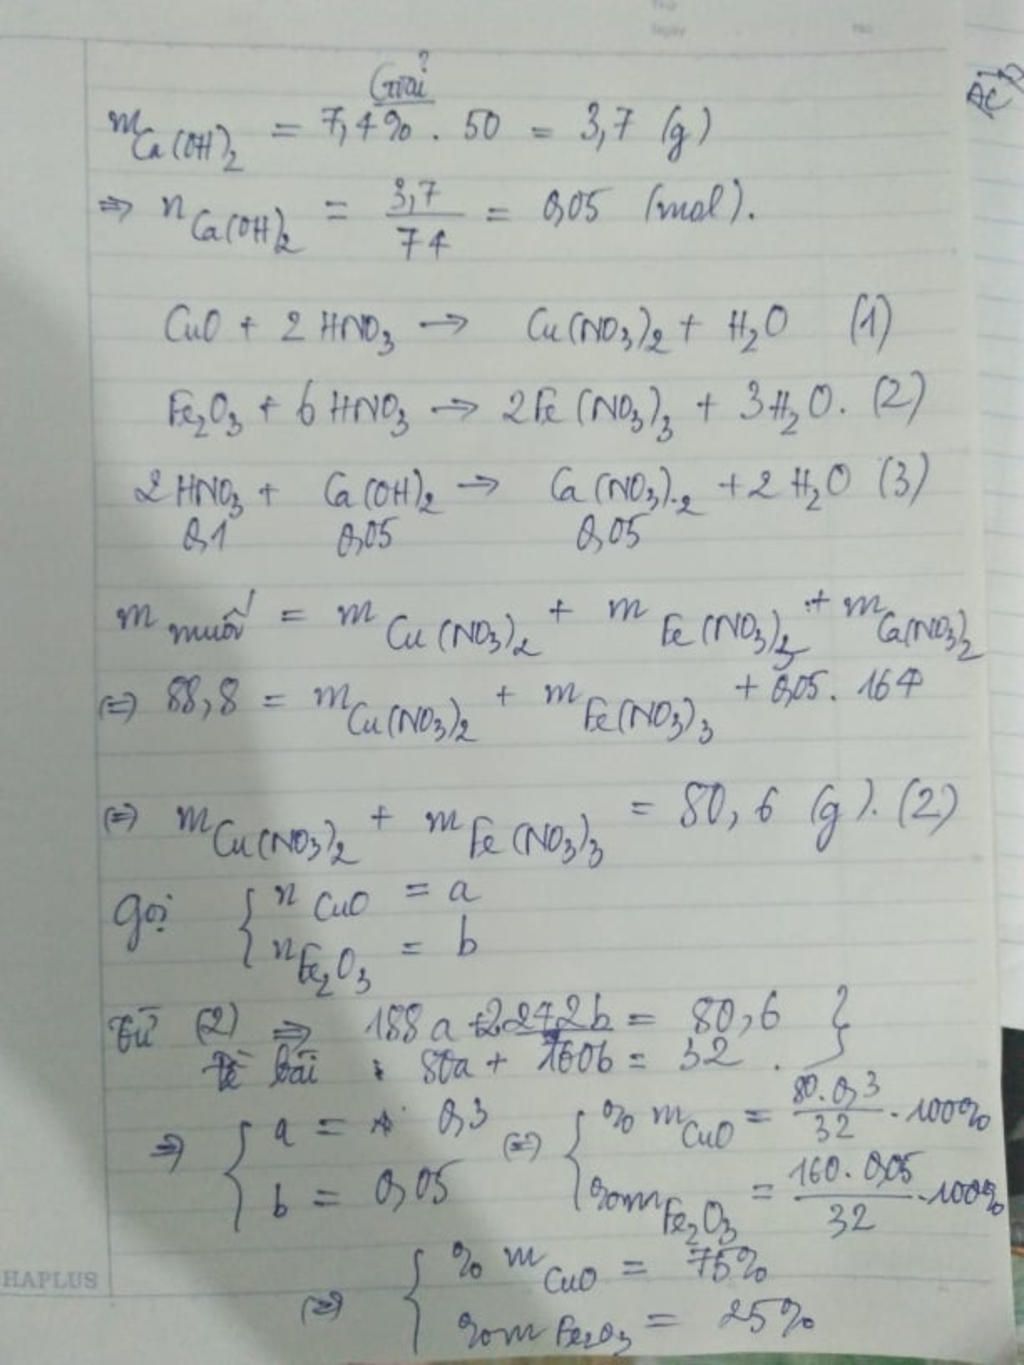 Giải
m Ca(OH)2 = 7,4% . 50 = 3,7 (g)
=> n Ca(OH)2 = 3,7/74 = 0,05 (mol).
CuO + 2 HNO3 → Cu(NO3)2 + H2O (1)
Fe2O3 + 6 HNO3 → 2Fe(NO3)3 + 3H2O. (2)
2 HNO3 + Ca(OH)2 → Ca(NO3)2 + 2 H2O (3)
0,1 0,05 0,05
m muối = m Cu(NO3)2 + m Fe(NO3)3 + m Ca(NO3)2
(=) 88,8 = m Cu(NO3)2 + m Fe(NO3)3 + 0,05. 164
(=) m Cu(NO3)2 + m Fe(NO3)3 = 80,6 (g). (2)
Gọi { n CuO = a
n Fe2O3 = b
Từ (2) => 188a + 2.242b = 80,6 }
Đề bài : 80a + 160b = 32.
=> { a = 0,3 (=) { % m CuO = 80.0,3/32 . 100%
b = 0,05 % m Fe2O3 = 160.0,05/32 . 100%
(=) { % m CuO = 75%
% m Fe2O3 = 25%
HAPLUS
AC